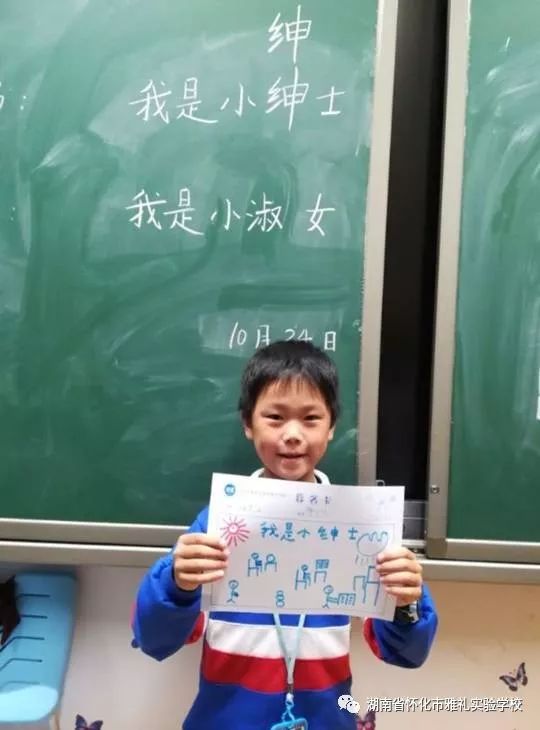 绅
我是小绅士
我是小淑女
10月24日
我是小绅士
湖南省怀化市雅礼实验学校